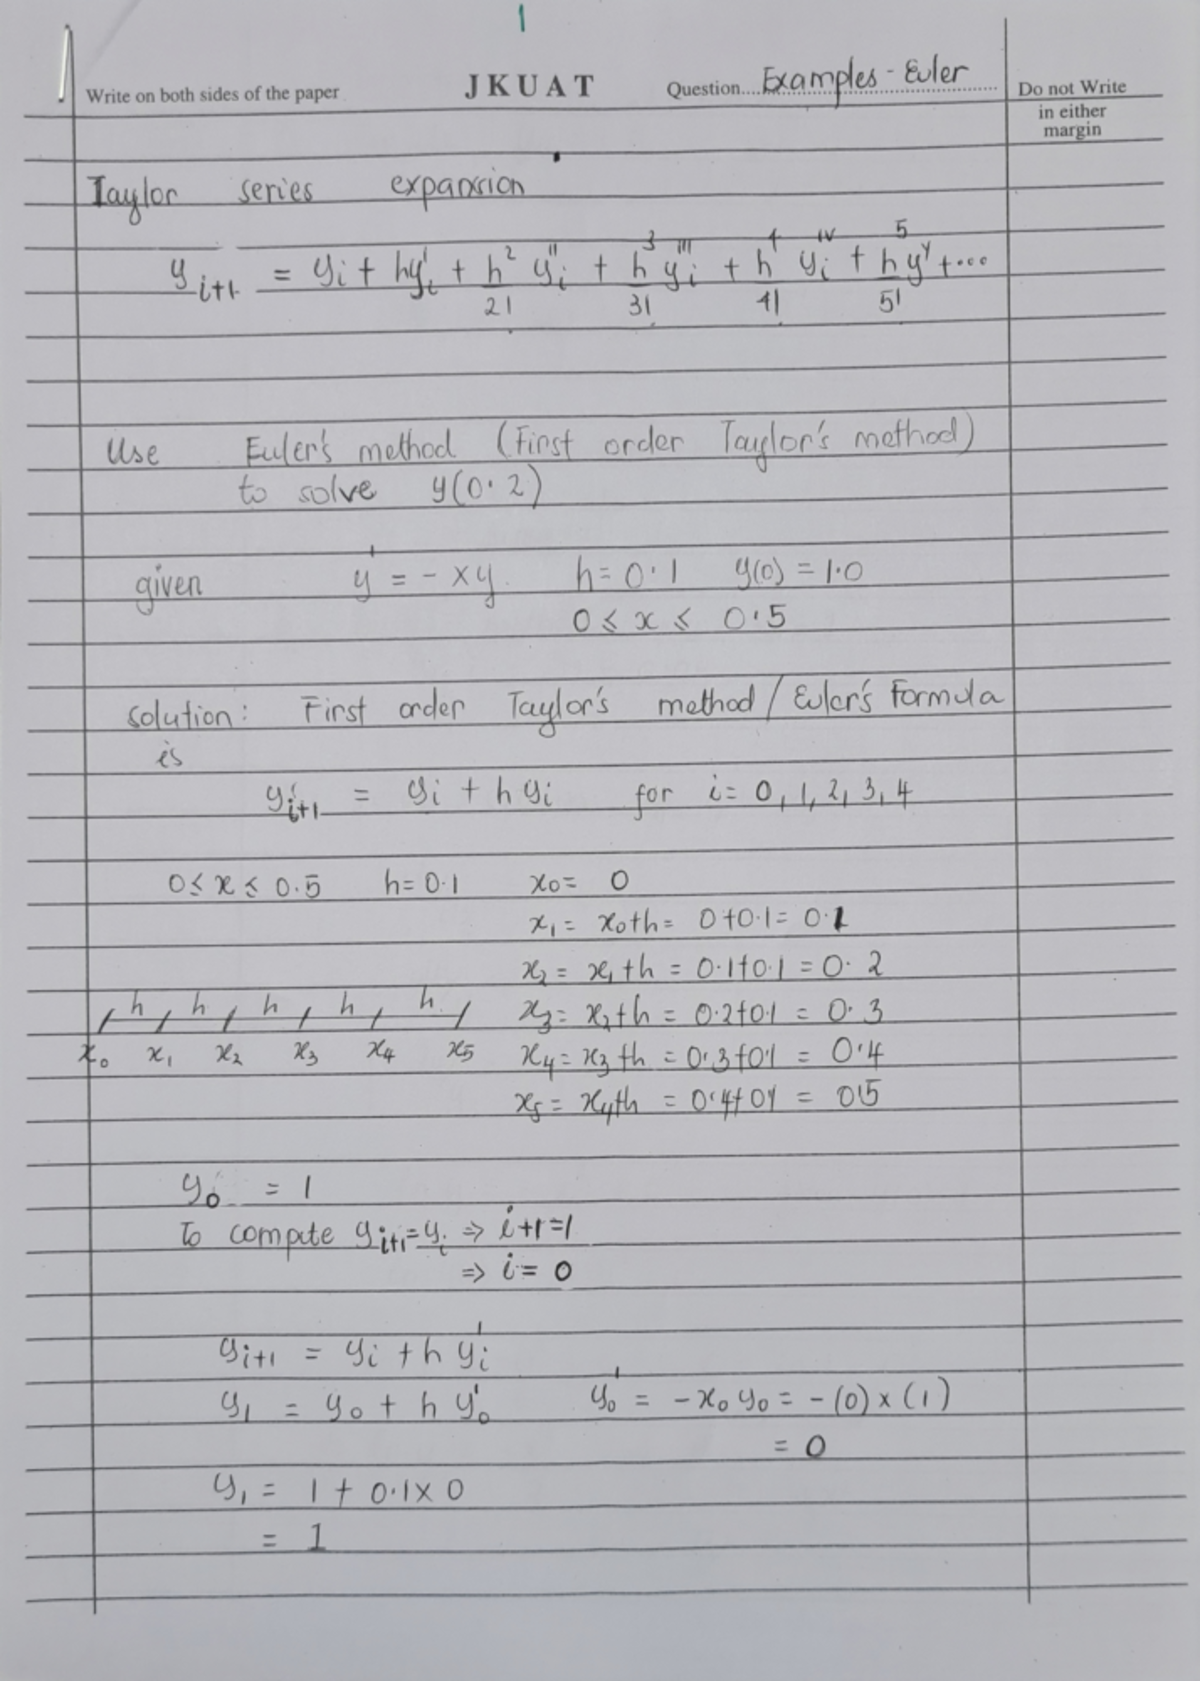 1
Write on both sides of the paper JKUAT Question.... Examples - Euler Do not Write
in either
margin
Taylor series expansion
y_{i+1} = y_i + hy'_i + h²/2! y''_i + h³/3! y'''_i + h⁴/4! y^{iv}_i + h⁵/5! y^v + ...
Use Euler's method (First order Taylor's method)
to solve y(0.2)
given y' = -xy. h = 0.1 y(0) = 1.0
0 ≤ x ≤ 0.5
solution: First order Taylor's method / Euler's Formula
is
y_{i+1} = y_i + h y_i for i = 0, 1, 2, 3, 4
0 ≤ x ≤ 0.5 h = 0.1 x₀ = 0
x₁ = x₀+h = 0+0.1 = 0.1
x₂ = x₁+h = 0.1+0.1 = 0.2
h h h h h x₃ = x₂+h = 0.2+0.1 = 0.3
x₀ x₁ x₂ x₃ x₄ x₅ x₄ = x₃+h = 0.3+0.1 = 0.4
x₅ = x₄+h = 0.4+0.1 = 0.5
y₀ = 1
To compute y_{i+1} = y_i ⇒ i+1=1
⇒ i = 0
y_{i+1} = y_i + h y'_i
y₁ = y₀ + h y'₀ y'₀ = -x₀y₀ = -(0)×(1)
= 0
y₁ = 1 + 0.1×0
= 1